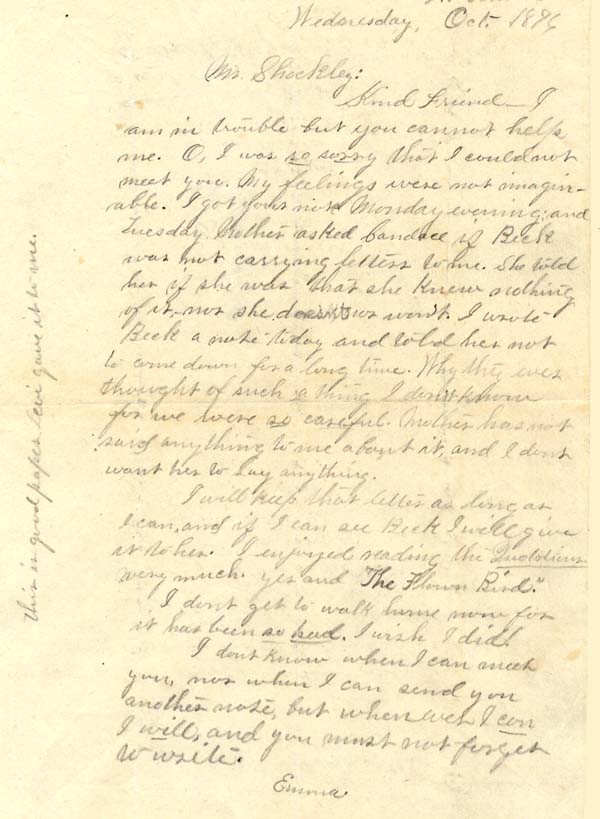 Wednesday, Oct. 1896
Mr. Shockley:
Kind Friend — I
am in trouble but you cannot help
me. O, I was so sorry that I could not
meet you. My feelings were not imagin-
able. I got your note Monday evening; and
Tuesday Mother asked Candace if Beck
was not carrying letters to me. She told
her if she was that she knew nothing
of it, nor she doesn't nor won't. I wrote
Beck a note today and told her not
to come down for a long time. Why they ever
thought of such a thing I don't know
for we were so careful. Mother has not
said anything to me about it, and I dont
want her to say anything.
I will keep that letter as long as
I can, and if I can see Beck I will give
it to her. I enjoyed reading the Quotations
very much. yes and "The Flown Bird."
I dont get to walk home now for
it has been so bad. I wish I did!
I dont know when I can meet
you, nor when I can send you
another note, but when ever I can
I will, and you must not forget
to write.
Emma.
this is good paper. gave it to me.